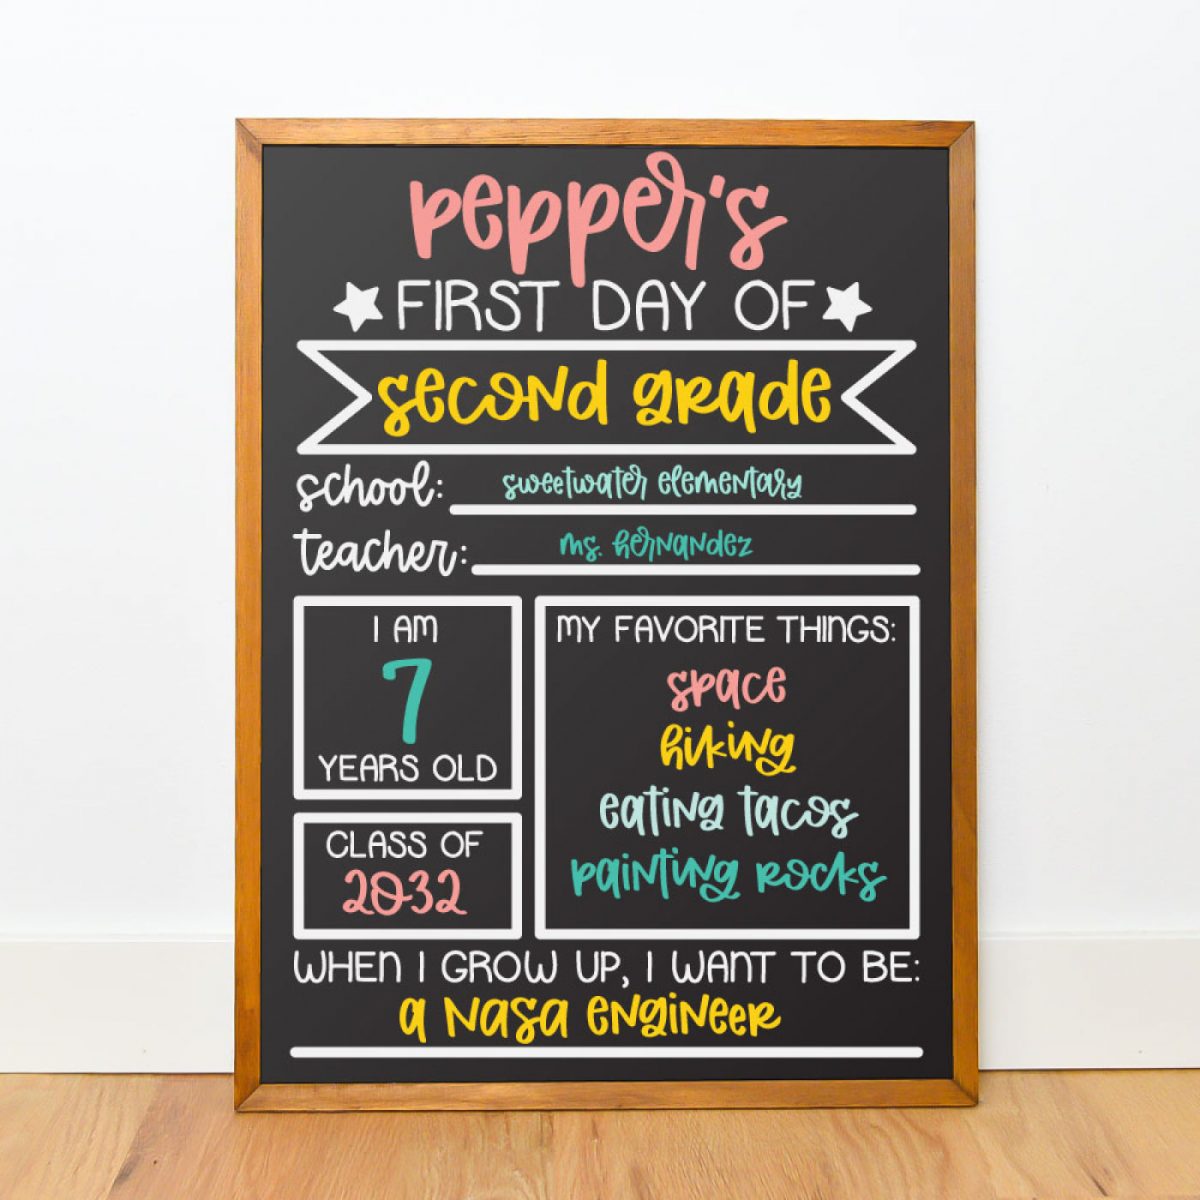 pepper's
FIRST DAY OF
second grade
school: sweetwater elementary
teacher: ms. hernandez
I AM
7
YEARS OLD
CLASS OF
2032
MY FAVORITE THINGS:
space
hiking
eating tacos
painting rocks
WHEN I GROW UP, I WANT TO BE:
a NASA engineer